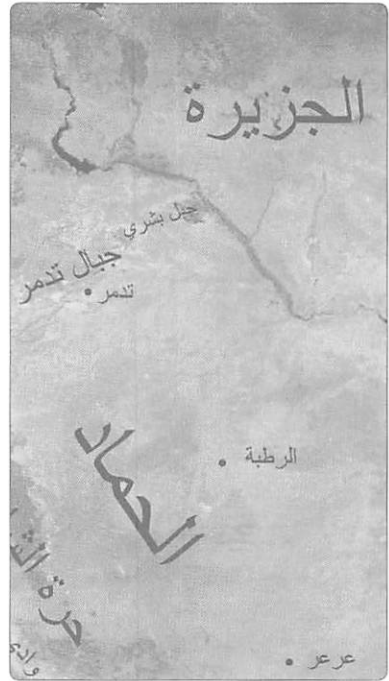 الجزيرة
جبل بشري
جبال تدمر
تدمر
الرطبة
الحماد
حرة
عرعر